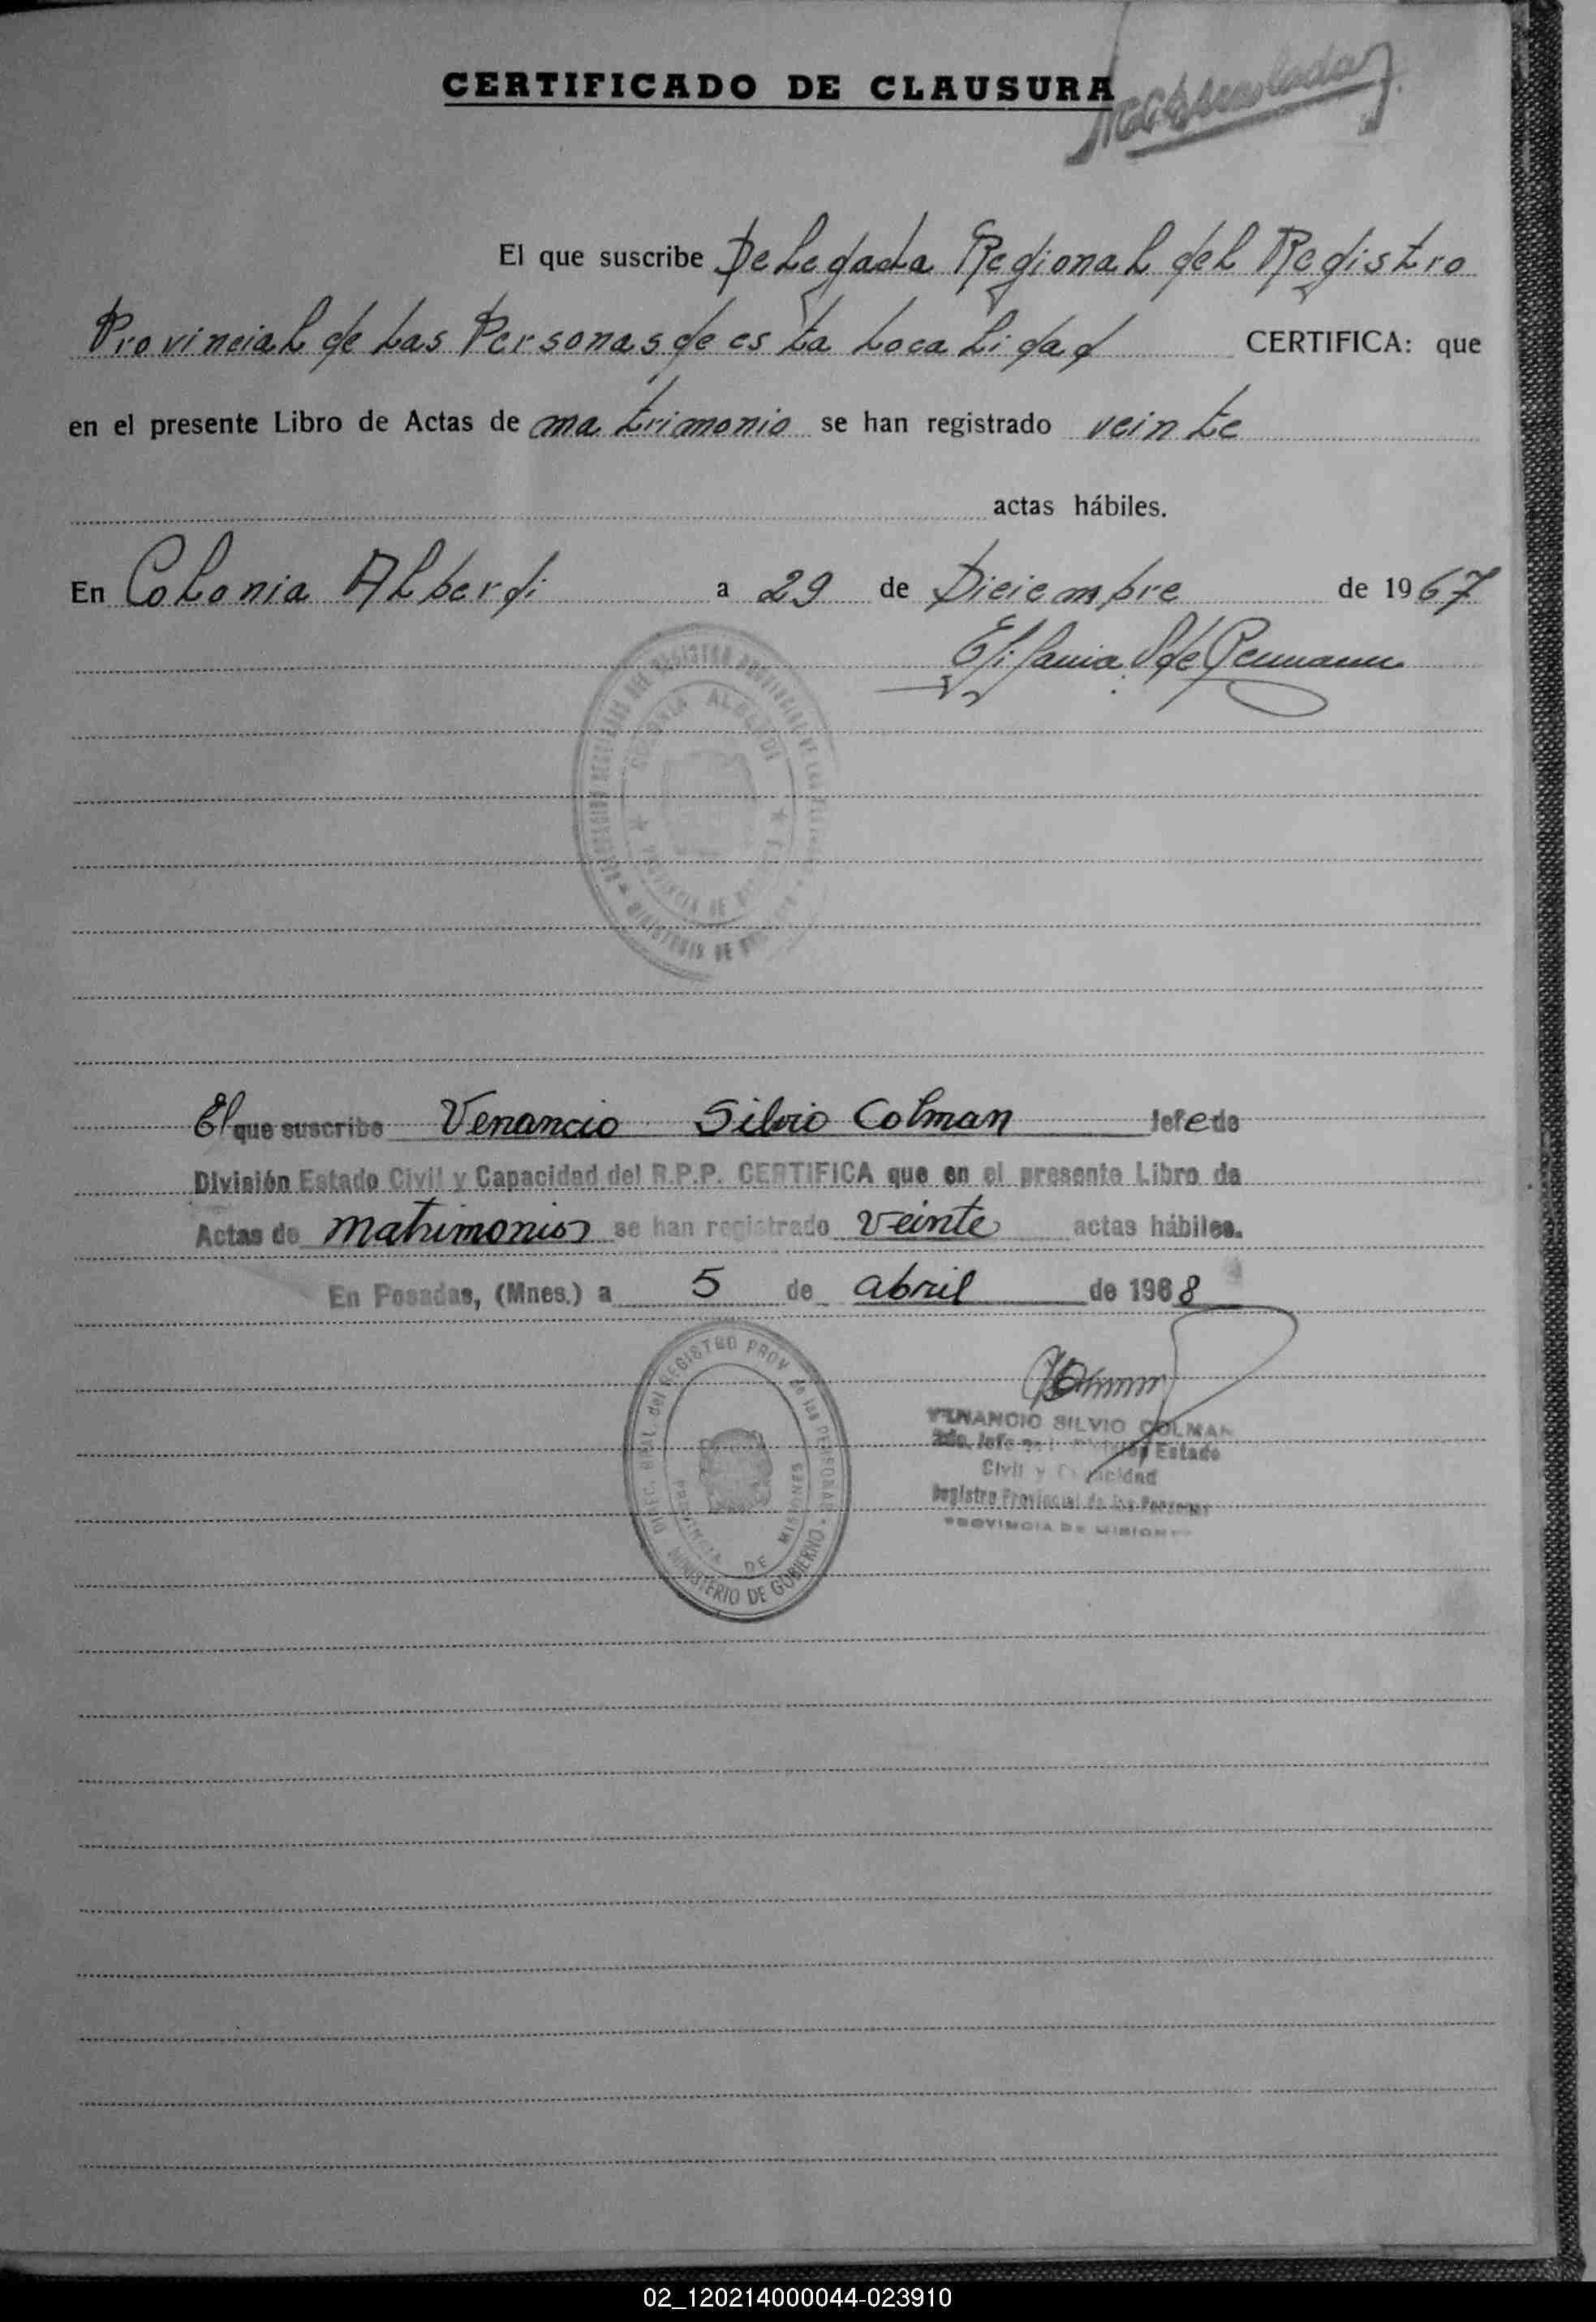 CERTIFICADO DE CLAUSURA
El que suscribe Delegada Regional del Registro
Provincial de las Personas de esta localidad CERTIFICA: que
en el presente Libro de Actas de matrimonio se han registrado veinte
actas hábiles.
En Colonia Alberdi a 29 de Diciembre de 1967
COLONIA ALBERDI
El que suscribe Venancio Silvio Colman Jefe de
División Estado Civil y Capacidad del R.P.P. CERTIFICA que en el presente Libro de
Actas de matrimonios se han registrado veinte actas hábiles.
En Posadas, (Mnes.) a 5 de abril de 1968
DIREC. GRAL. del REGISTRO PROV. de las PERSONAS
PROVINCIA DE MISIONES
MINISTERIO DE GOBIERNO
VENANCIO SILVIO COLMAN
2do. Jefe División Estado
Civil y Capacidad
Registro Provincial de las Personas
PROVINCIA DE MISIONES
02_120214000044-023910